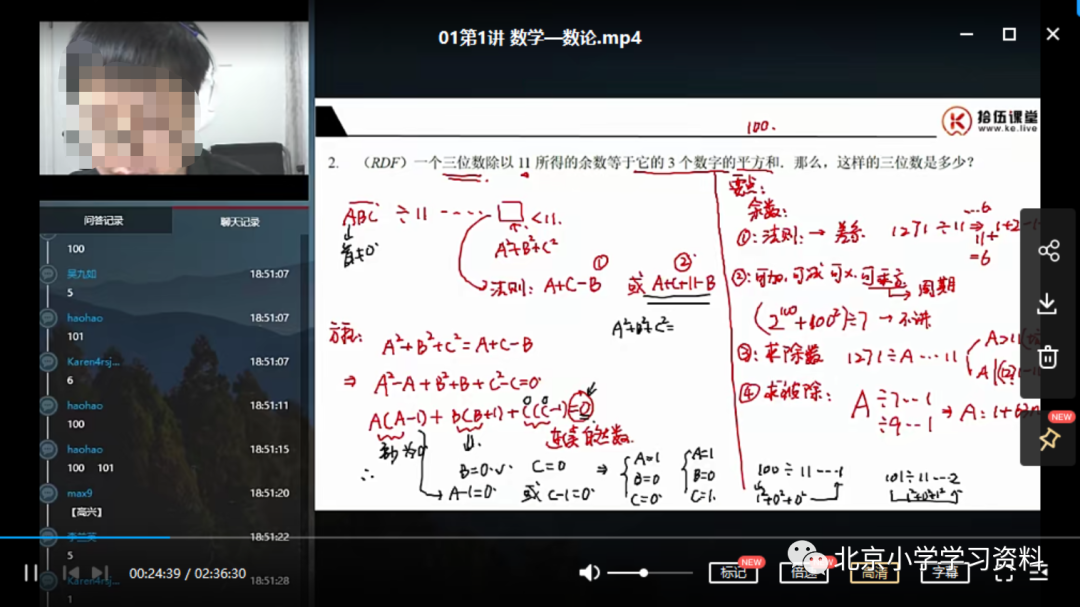 01第1讲 数学—数论.mp4
拾伍课堂
www.ke.live
100.
2. （RDF）一个三位数除以 11 所得的余数等于它的 3 个数字的平方和．那么，这样的三位数是多少?
ABC ÷11 ---- □ <11.
A²+B²+C²
首≠0
法则: A+C-B ① 或 A+C+11-B ②
A²+B²+C²=
A²+B²+C²=A+C-B
⇒ A²-A+B²+B+C²-C=0
A(A-1)+B(B+1)+C(C-1)=0
连续自然数.
∴ B=0 C=0
A-1=0 或 C-1=0
⇒ A=1 B=0 C=0
A=1 B=0 C=1.
要点:
余数:
①: 法则: → 1271 ÷11 ⇒
=6
②: 可加, 可减 可x, 可乘方
→ 周期
(2¹⁰⁰+100²)÷7 → 不讲
③: 求除数 1271÷A … 11
④ 求被除: A ÷7 … 1
÷9 … 1
100÷11 … 1
1²+0²+0²
101÷11 … 2
1²+0²+1²
问答记录
聊天记录
100
吴九如 18:51:07
5
haohao 18:51:07
101
Karen4rsj... 18:51:07
6
haohao 18:51:11
100
haohao 18:51:15
100 101
max9 18:51:20
【高兴】
18:51:22
5
Karen4rsj... 18:51:28
1
00:24:39 / 02:36:30
标记
NEW
倍速
高清
字幕
NEW
北京小学学习资料